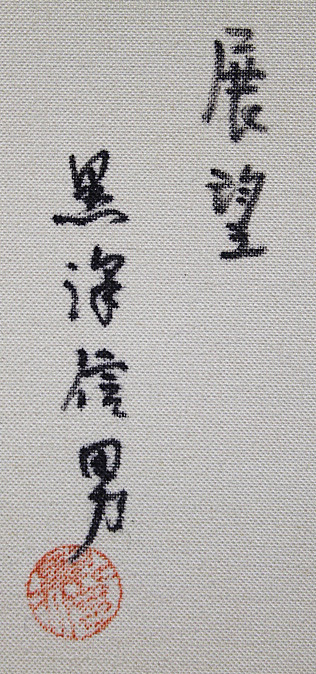 展望
黒澤信男